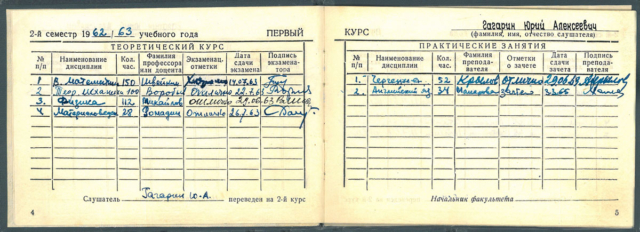 2-й семестр 1962/63 учебного года ПЕРВЫЙ
ТЕОРЕТИЧЕСКИЙ КУРС
№ п/п Наименование дисциплин Кол. час. Фамилия профессора или доцента Экзаменац. отметки Дата сдачи экзамена Подпись экзаменатора
1 В. Математика 150 14.07.63
2 Теор. механика 100 Отлично 22.7.63
3. Физика 112 Михайлов отлично 63
4. 28 Отлично 26.7.63
Слушатель Гагарин Ю.А. переведен на 2-й курс
4
КУРС Гагарин Юрий Алексеевич
(фамилия, имя, отчество слушателя)
ПРАКТИЧЕСКИЕ ЗАНЯТИЯ
№ п/п Наименование дисциплин Кол. час. Фамилия преподавателя Отметки о зачете Дата сдачи зачета Подпись преподавателя
1. Черчение 52 отлично
2. Английский яз 34 зачтено
Начальник факультета
5